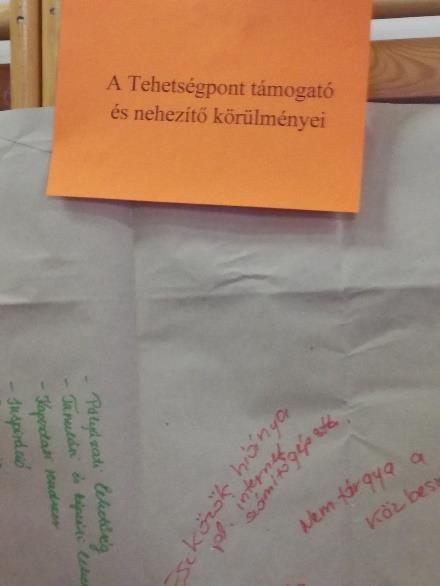 A Tehetségpont támogató
és nehezítő körülményei
- Pályázati lehetőség
- Tanulási és képzési
- Kapcsolati rendszer
- Inspiráló
Eszközök hiánya
pl. internet
számítógép stb.
Nem tárgya a
közbesz